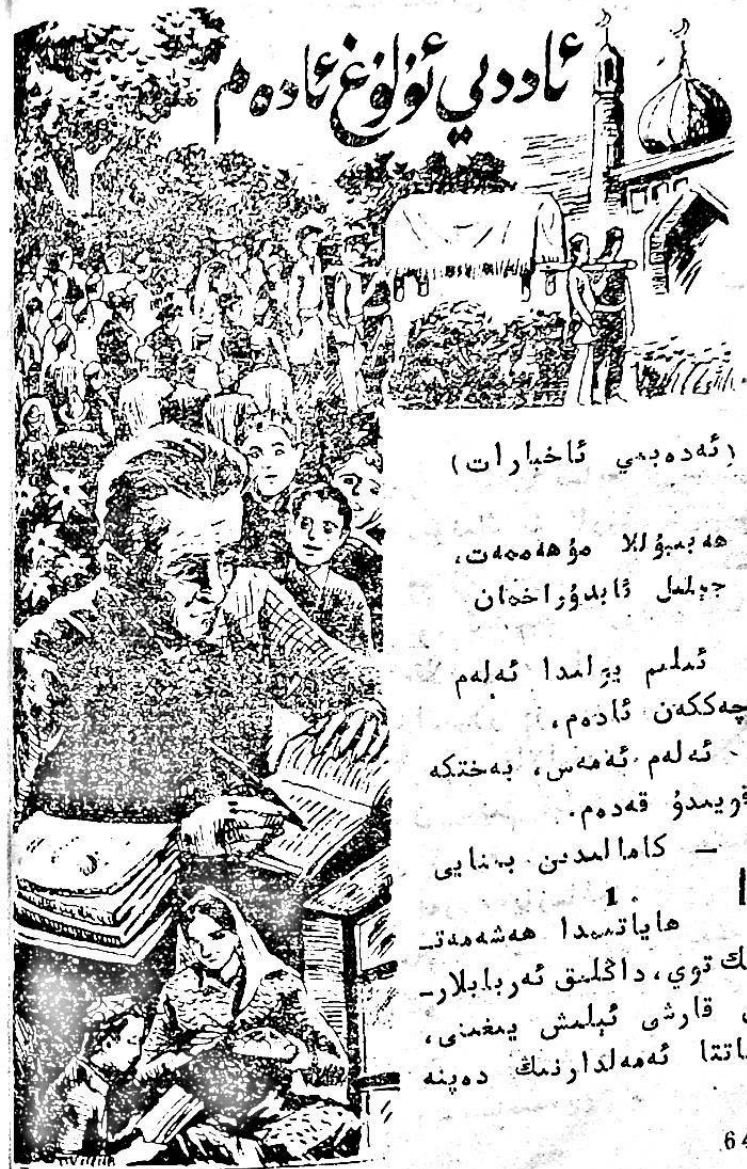 ئاددىي ئۇلۇغ ئادەم
(ئەدەبىي ئاخبارات)
ھەببۇللا مۇھەممەت،
جېلىل ئابدۇراخمان
ئىلىم يولىدا ئەلەم
چەككەن ئادەم،
ئەلەم ئەمەس، بەختكە
قويىدۇ قەدەم.
— كامالىدىن بىنايى
1
ھاياتىمدا ھەشەمەتـ
توي، داڭلىق ئەربابلارـ
قارشى ئېلىش يىغىنى،
ئەمەلدارنىڭ دەپنە
64